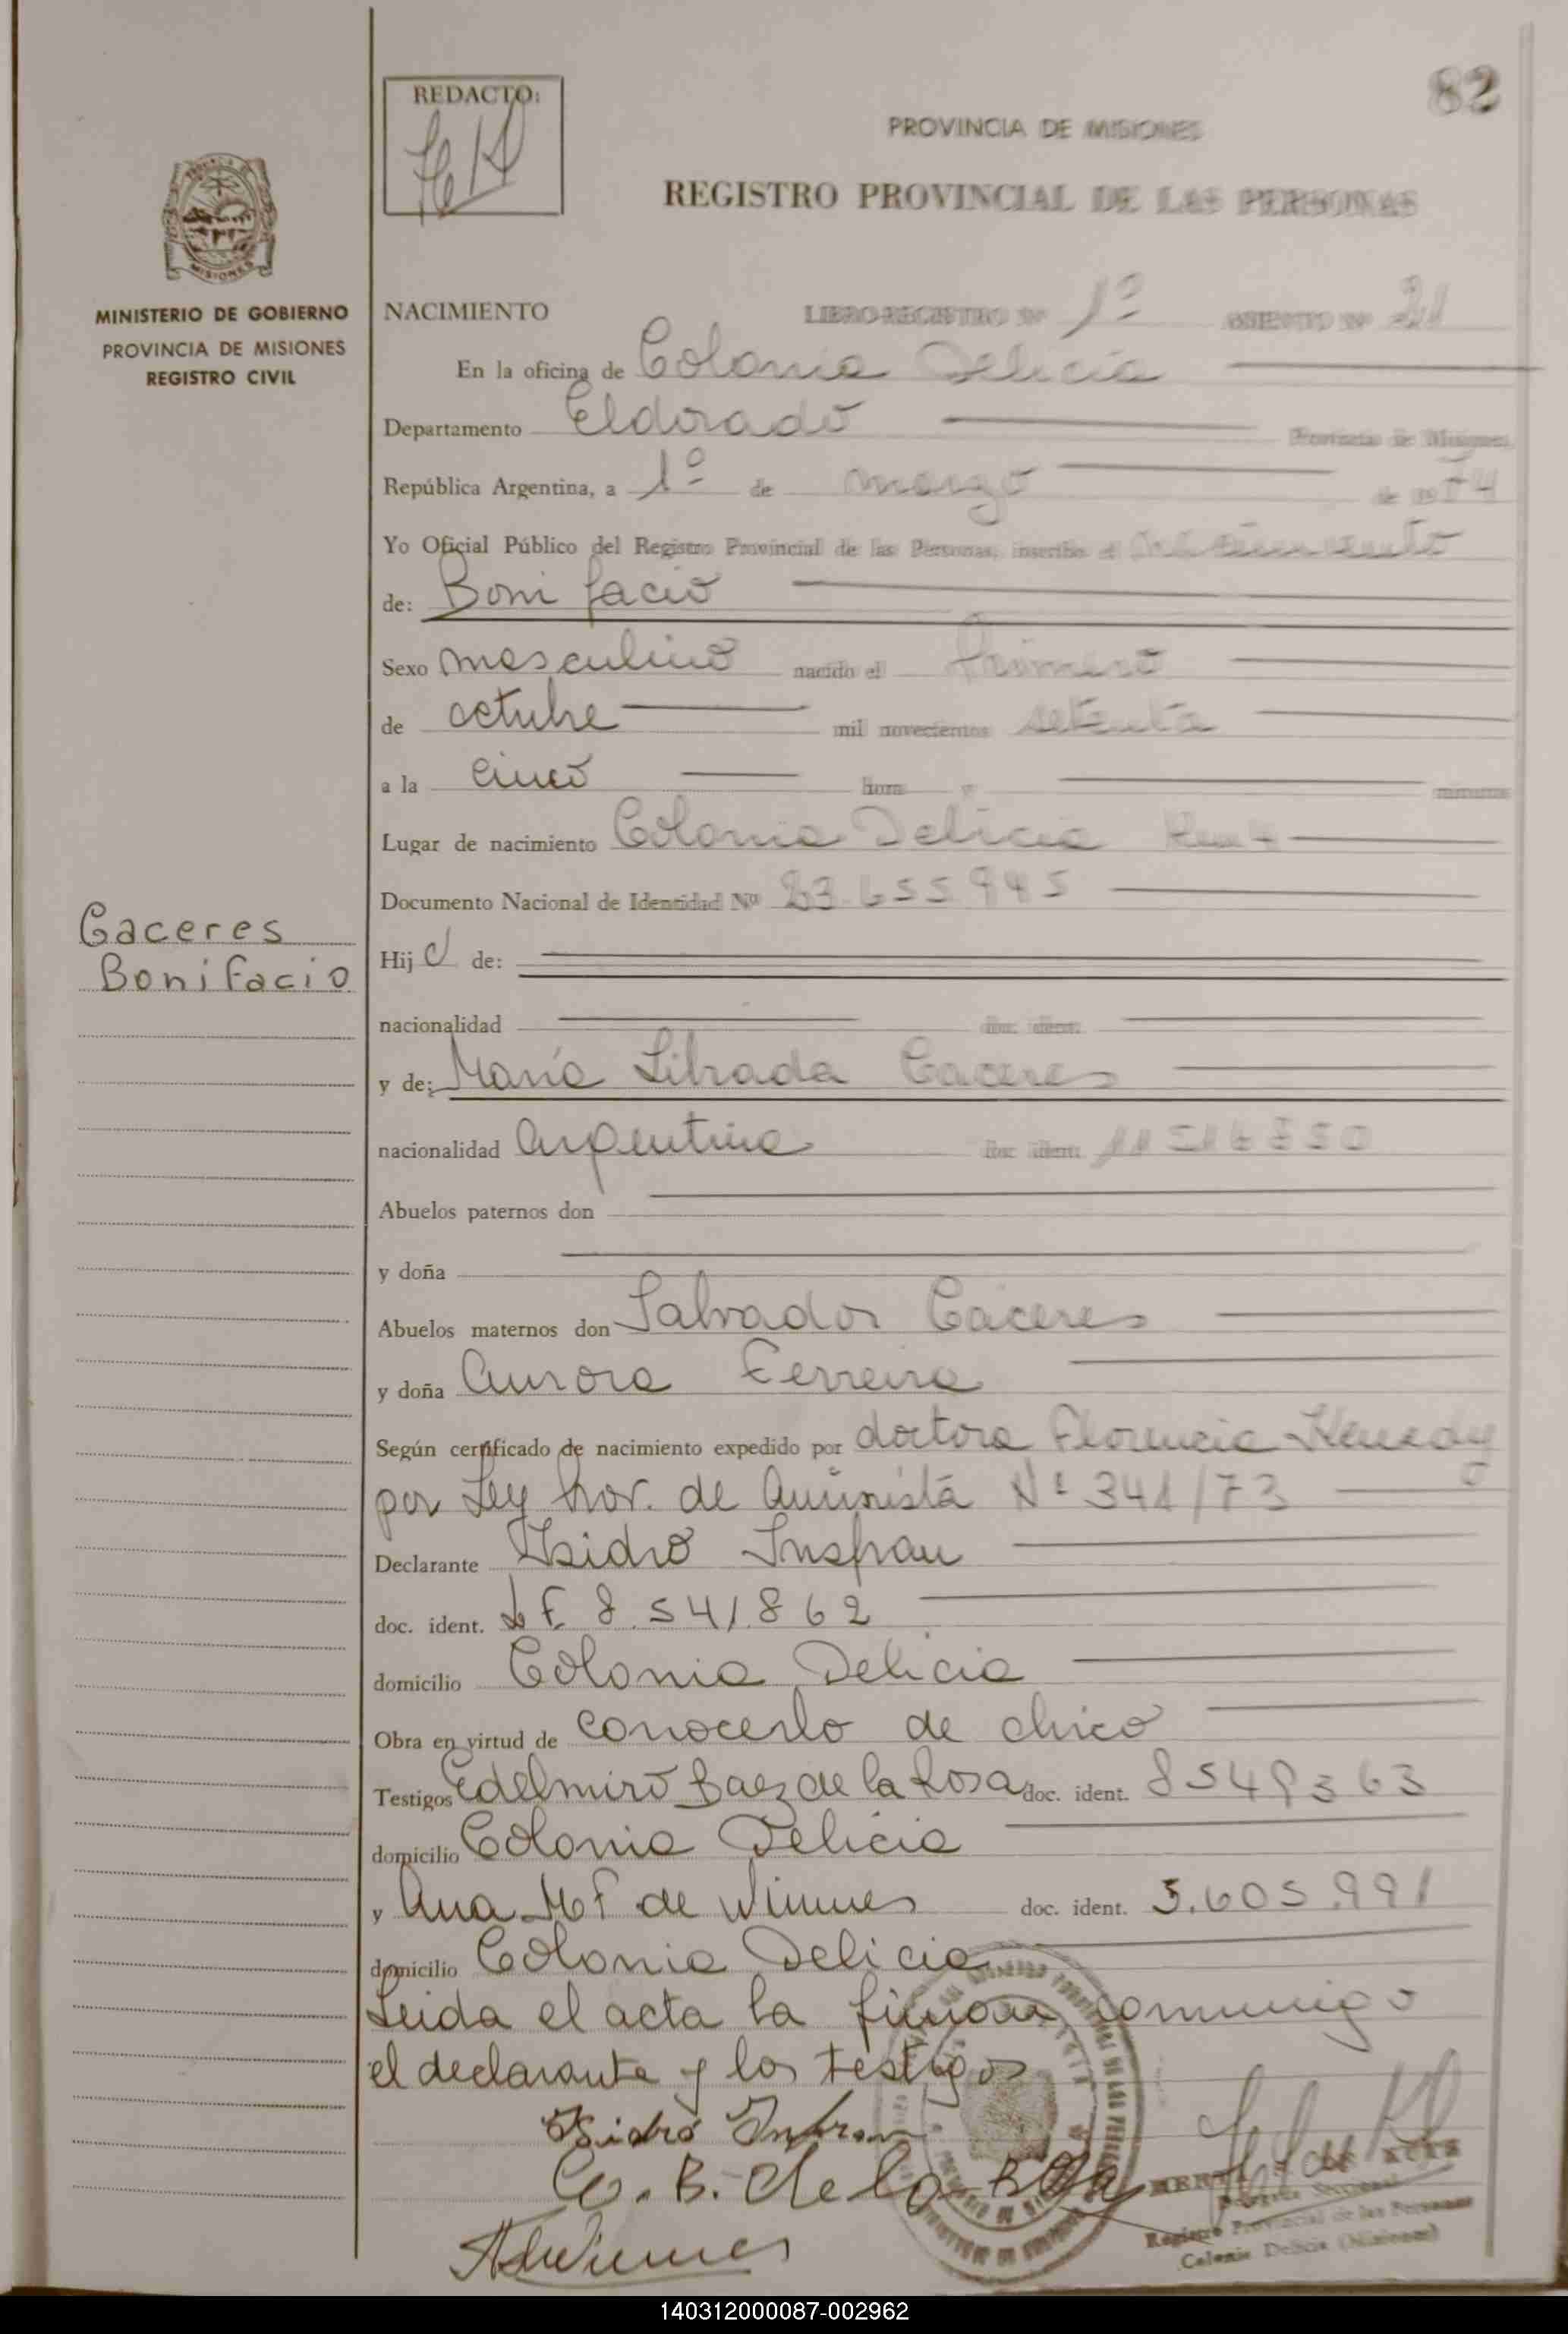 82
REDACTO:
PROVINCIA DE MISIONES
REGISTRO PROVINCIAL DE LAS PERSONAS
MISIONES
MINISTERIO DE GOBIERNO
PROVINCIA DE MISIONES
REGISTRO CIVIL
NACIMIENTO LIBRO REGISTRO Nº 1º ASIENTO Nº 21
En la oficina de Colonia Delicia
Departamento Eldorado Provincia de Misiones
República Argentina, a 1º de marzo de 1974
Yo Oficial Público del Registro Provincial de las Personas, inscribo el nacimiento
de: Bonifacio
Sexo masculino nacido el Primero
de octubre mil novecientos setenta
a la cinco hora y minutos
Lugar de nacimiento Colonia Delicia Km 4
Documento Nacional de Identidad Nº 23.655.945
Caceres
Bonifacio
Hijo de:
nacionalidad doc. ident.
y de: María Librada Caceres
nacionalidad Argentina doc. ident.
Abuelos paternos don
y doña
Abuelos maternos don Salvador Caceres
y doña Aurora Ferreira
Según certificado de nacimiento expedido por doctora Florencia Kenedy
por Ley Prov. de Aministía Nº 341/73
Declarante Isidro Insfrau
doc. ident. L E 8.541.862
domicilio Colonia Delicia
Obra en virtud de conocerlo de chico
Testigos Edelmiro Baez de la Rosa doc. ident. 8549363
domicilio Colonia Delicia
y Ana Mª de doc. ident. 5.605.991
domicilio Colonia Delicia
Leida el acta la firman conmigo
el declarante y los testigos
Isidro Insfran
B. de la Rosa
Registro Provincial de las Personas
Colonia Delicia (Misiones)
140312000087-002962